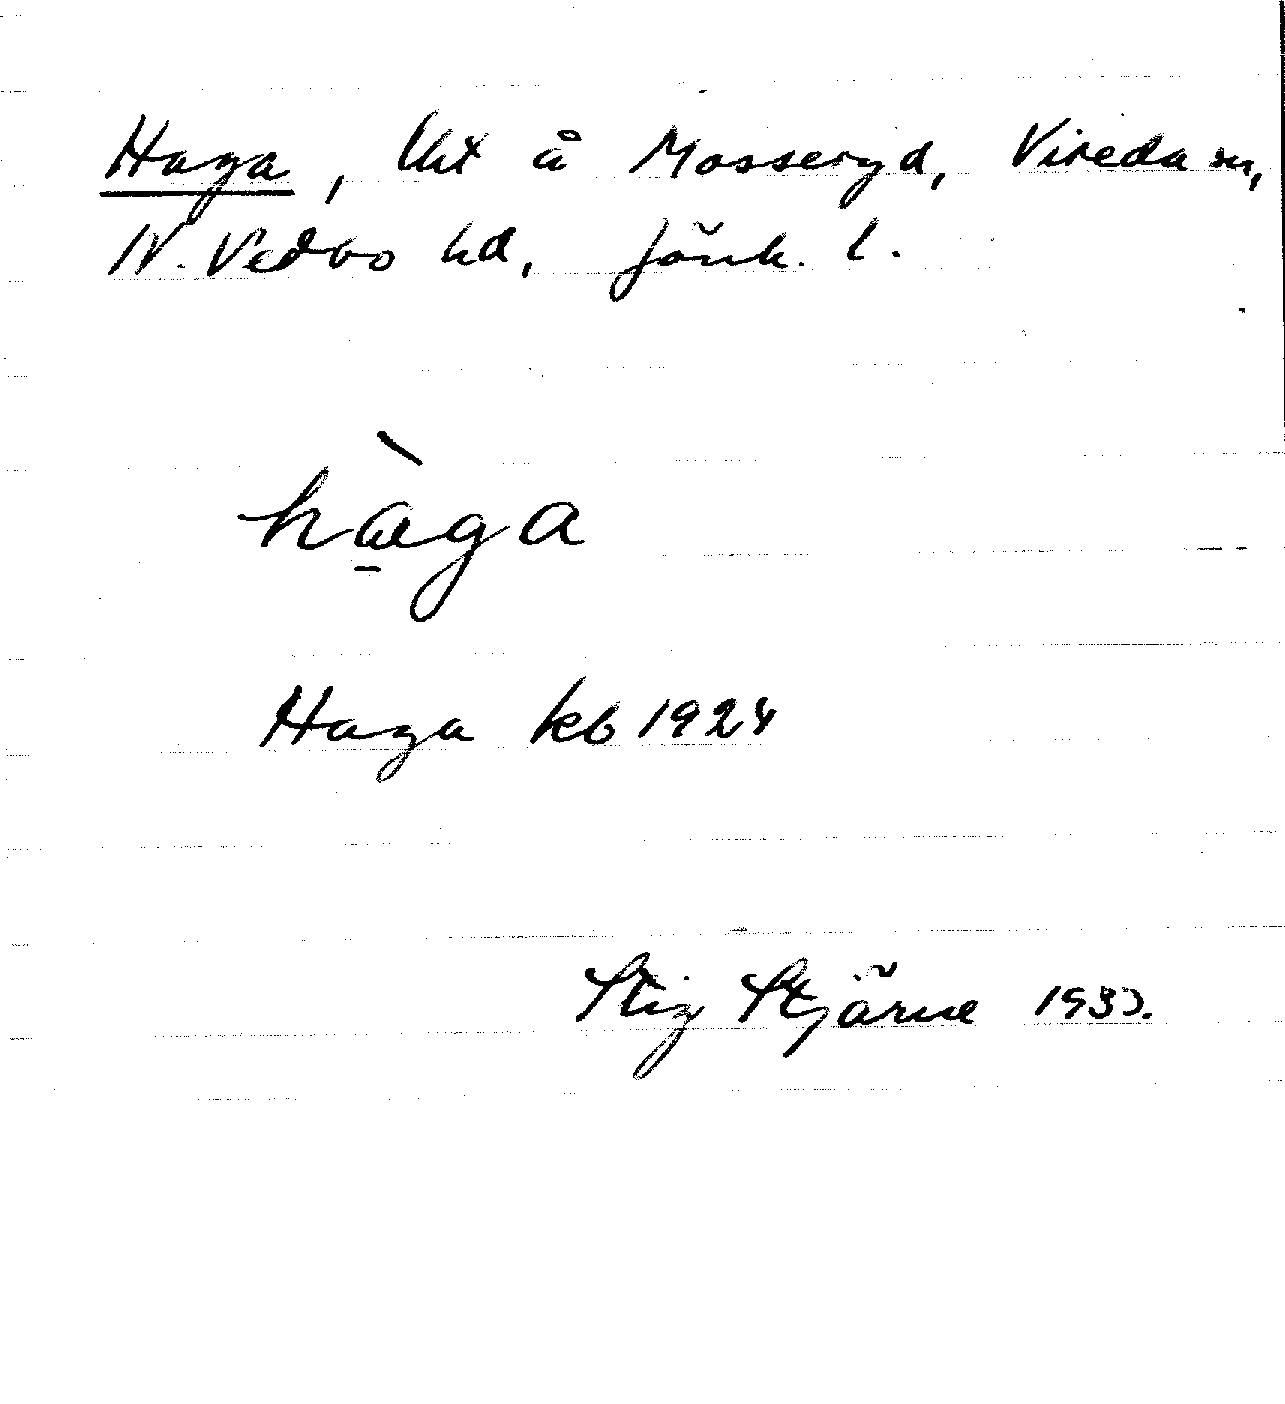 Haga, lht å Mosseryd, Vireda sn,
N. Vedbo hd, Jönk. l.
hàga
Haga kb 1924
Stig Stjärne